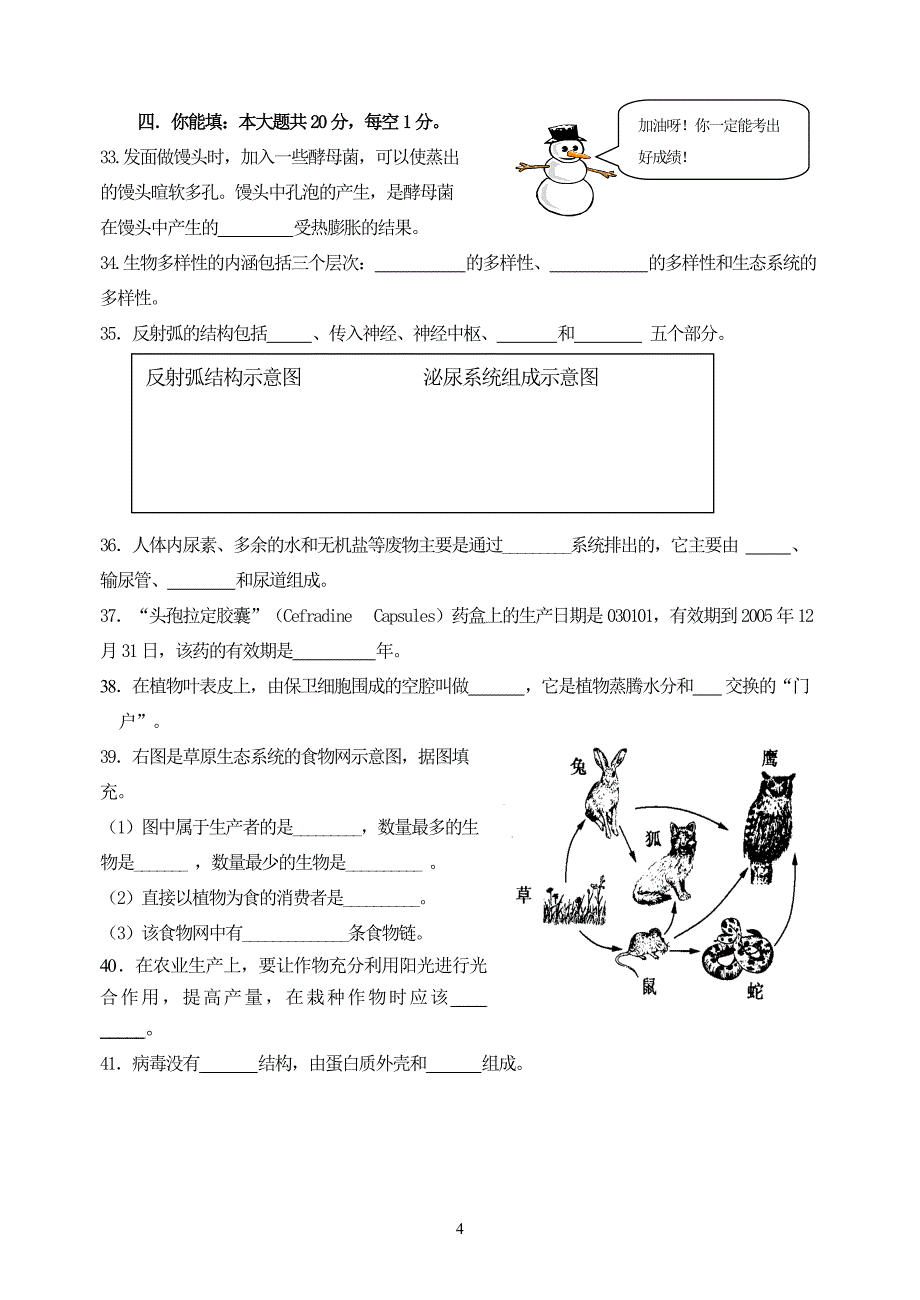 四．你能填：本大题共20分，每空1分。
加油呀！你一定能考出
好成绩！
33.发面做馒头时，加入一些酵母菌，可以使蒸出
的馒头暄软多孔。馒头中孔泡的产生，是酵母菌
在馒头中产生的__________受热膨胀的结果。
34.生物多样性的内涵包括三个层次：____________的多样性、_____________的多样性和生态系统的
多样性。
35．反射弧的结构包括______、传入神经、神经中枢、________和_________ 五个部分。
反射弧结构示意图 泌尿系统组成示意图
36．人体内尿素、多余的水和无机盐等废物主要是通过_________系统排出的，它主要由 ______、
输尿管、_________和尿道组成。
37．“头孢拉定胶囊”（Cefradine Capsules）药盒上的生产日期是030101，有效期到2005年12
月31日，该药的有效期是___________年。
38．在植物叶表皮上，由保卫细胞围成的空腔叫做_______，它是植物蒸腾水分和____交换的“门
户”。
39．右图是草原生态系统的食物网示意图，据图填
充。
（1）图中属于生产者的是_________，数量最多的生
物是_______ ，数量最少的生物是__________ 。
（2）直接以植物为食的消费者是__________。
（3）该食物网中有______________条食物链。
兔
鹰
狐
草
鼠
蛇
40．在农业生产上，要让作物充分利用阳光进行光
合作用，提高产量，在栽种作物时应该____
______。
41．病毒没有________结构，由蛋白质外壳和_______组成。
4